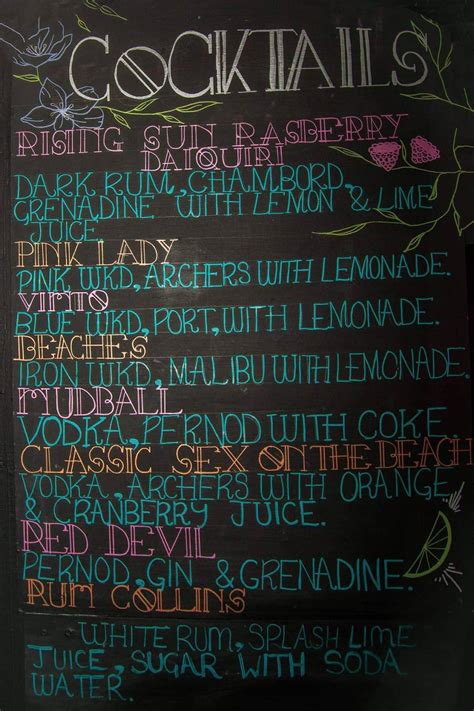 COCKTAILS
RISING SUN RASBERRY
DAIQUIRI
DARK RUM, CHAMBORD,
GRENADINE WITH LEMON & LIME
JUICE
PINK LADY
PINK WKD, ARCHERS WITH LEMONADE.
VINTO
BLUE WKD, PORT, WITH LEMONADE.
BEACHES
IRON WKD, MALIBU WITH LEMONADE.
MUDBALL
VODKA, PERNOD WITH COKE
CLASSIC SEX ON THE BEACH
VODKA, ARCHERS WITH ORANGE
& CRANBERRY JUICE.
RED DEVIL
PERNOD, GIN & GRENADINE.
RUM COLLINS
WHITE RUM, SPLASH LIME
JUICE, SUGAR WITH SODA
WATER.